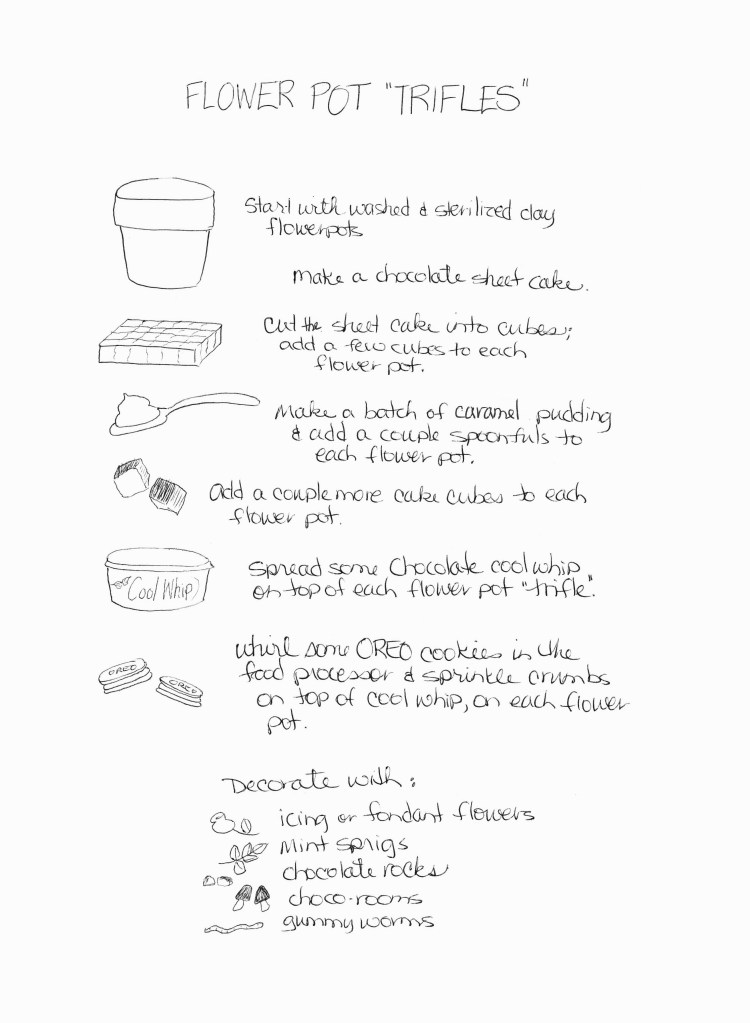 FLOWER POT "TRIFLES"
Start with washed & sterilized clay
flowerpots
make a chocolate sheet cake.
Cut the sheet cake into cubes;
add a few cubes to each
flower pot.
Make a batch of caramel pudding
& add a couple spoonfuls to
each flower pot.
Add a couple more cake cubes to each
flower pot.
Cool Whip
Spread some Chocolate cool whip
on top of each flower pot "trifle".
OREO
OREO
whirl some OREO cookies in the
food processor & sprinkle crumbs
on top of cool whip, on each flower
pot.
Decorate with:
icing or fondant flowers
Mint sprigs
chocolate rocks
choco-rooms
gummy worms